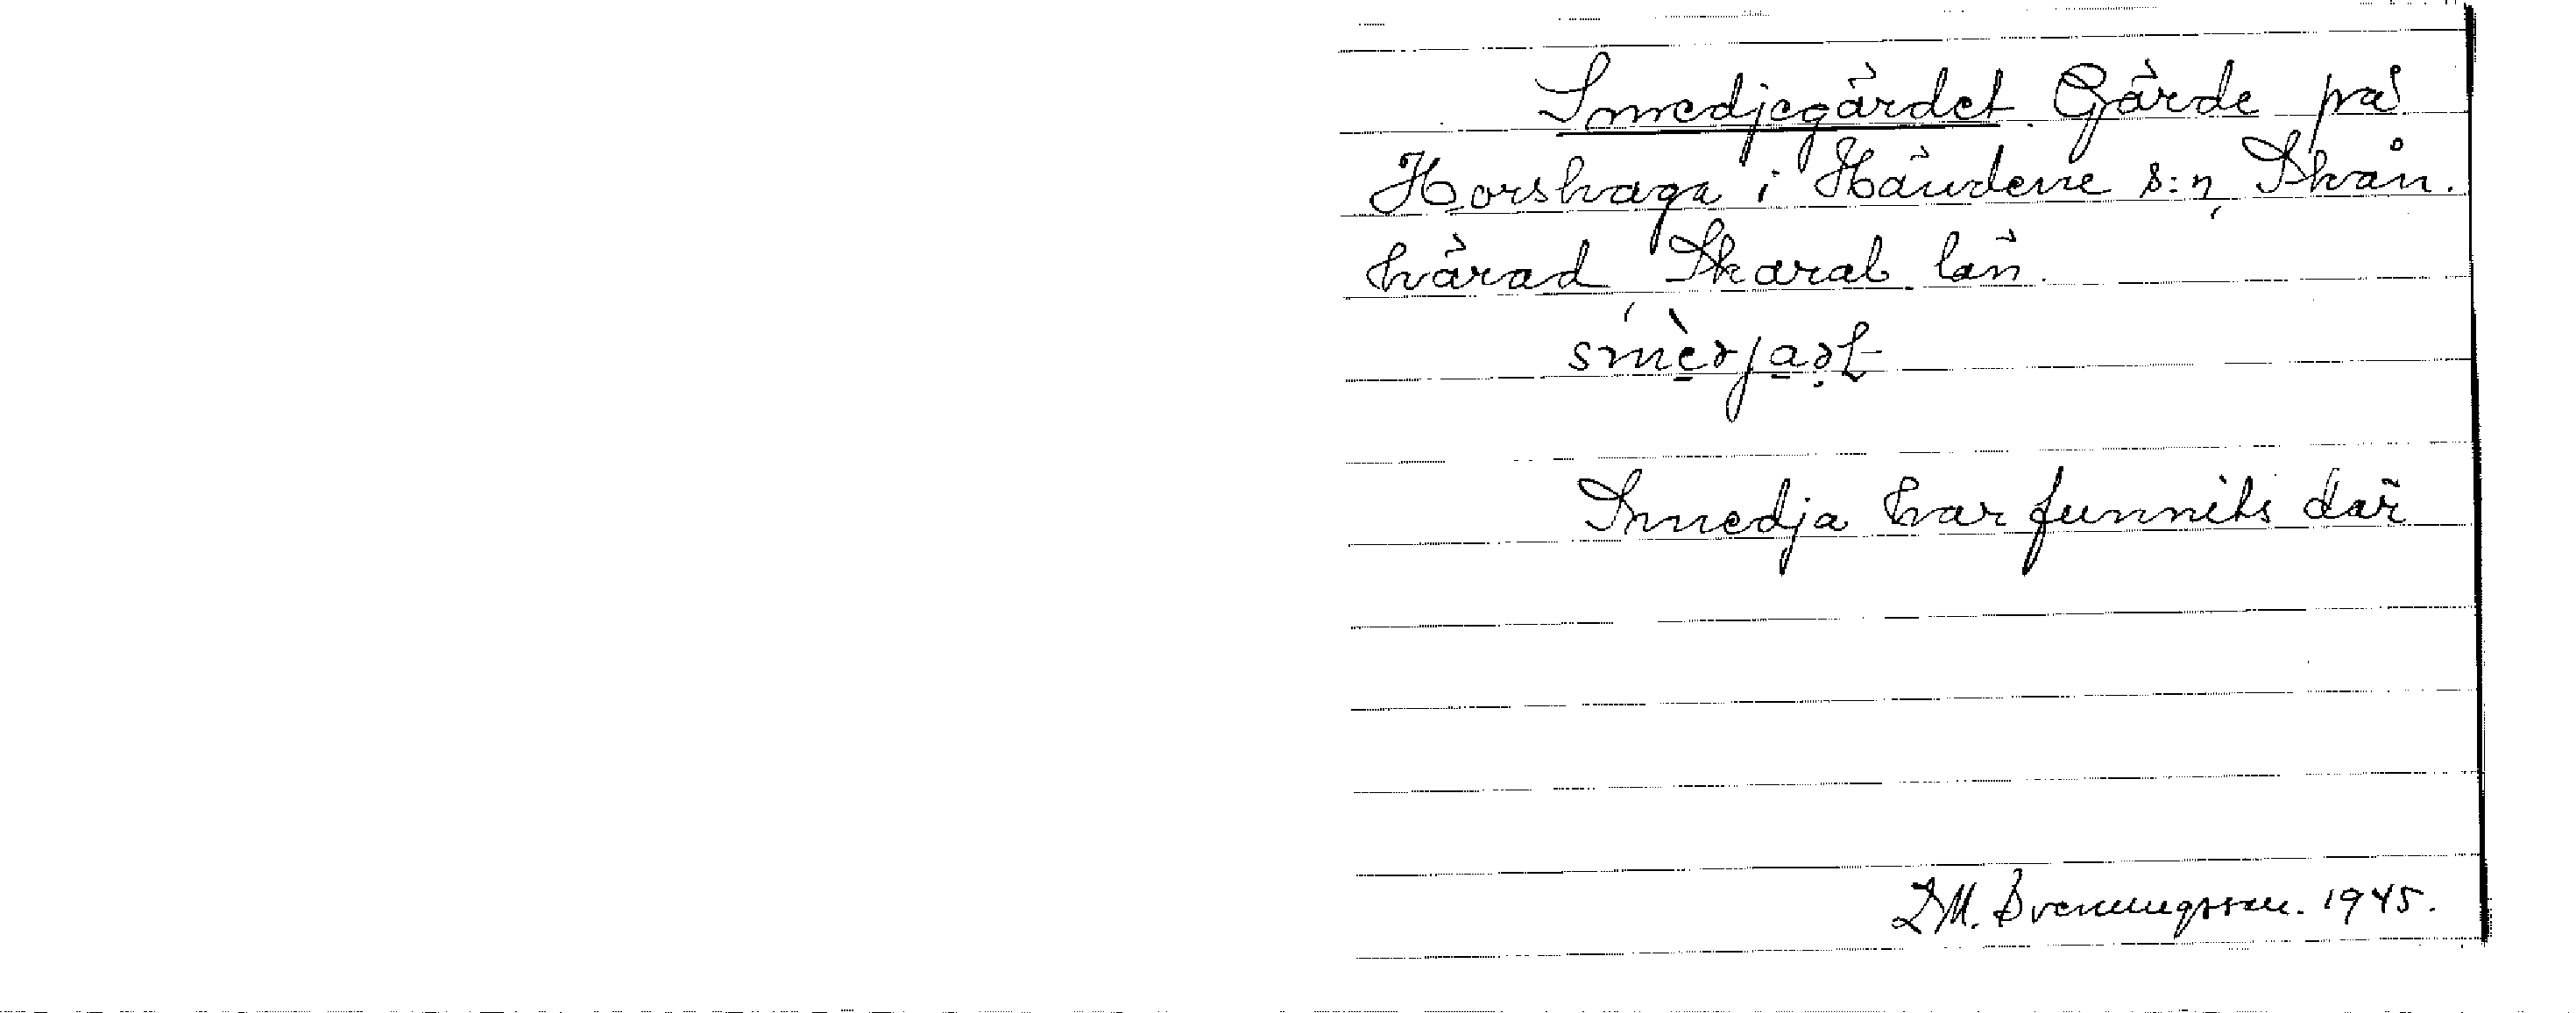 Smedjegärdet. Gärde på
Horshaga i Händene s:n, Skån.
härad, Skarab. län.
Smedja har funnits där
D.M. Svenningsson. 1945.